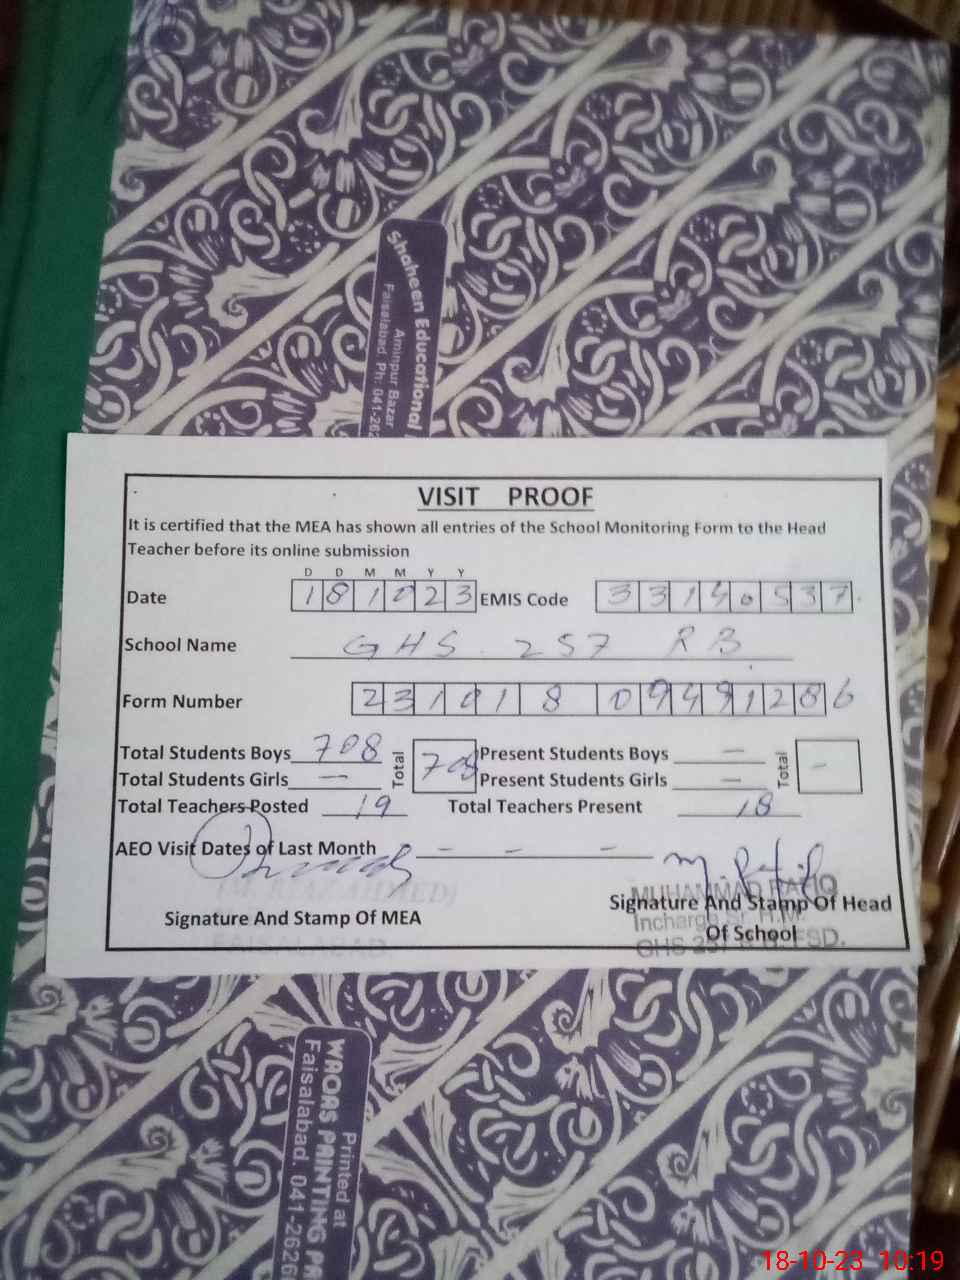 Shaheen Educational
Aminpur Bazar
Faisalabad Ph: 041-262
VISIT PROOF
It is certified that the MEA has shown all entries of the School Monitoring Form to the Head
Teacher before its online submission
D D M M Y Y
Date 1 8 1 0 2 3 EMIS Code 3 3 1 4 0 5 3 7
School Name GHS 257 RB
Form Number 2 3 1 0 1 8 0 9 4 9 1 2 8 6
Total Students Boys 708 Total 708 Present Students Boys — Total -
Total Students Girls — Present Students Girls —
Total Teachers Posted 19 Total Teachers Present 18
AEO Visit Dates of Last Month - - -
(M. RIAZ AHMED)
FAISALABAD.
Signature And Stamp Of MEA
M. Rafiq
MUHAMMAD RAFIQ
Incharge Sr. H.M.
GHS 257 R.B. FSD.
Signature And Stamp Of Head
Of School
Printed at
WAQAS PRINTING
Faisalabad. 041-2626
18-10-23 10:19